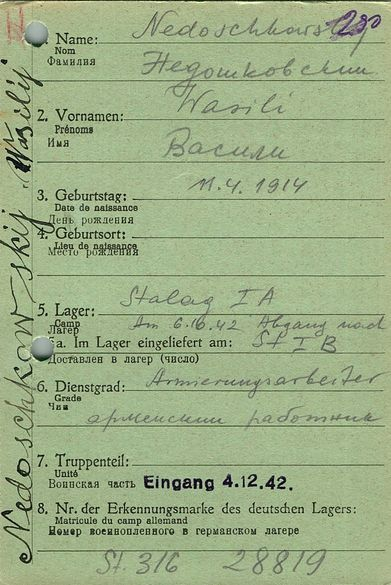 230
1. Name: Nedoschkowskij
Nom
Фамилия Недошковскии
Wasili
2. Vornamen:
Prénoms
Имя Васили
3. Geburtstag: 11.4.1914
Date de naissance
День рождения
4. Geburtsort:
Lieu de naissance
Место рождения
5. Lager: Stalag IA
Camp Am 6.10.42 Abgang nach
Лагер
5a. Im Lager eingeliefert am: St IB
Доставлен в лагер (число)
6. Dienstgrad: Armierungsarbeiter
Grade
Чин арменскии работник
7. Truppenteil:
Unité
Воинская часть Eingang 4.12.42.
8. Nr. der Erkennungsmarke des deutschen Lagers:
Matricule du camp allemand
Номер военнопленного в германском лагере
St. 316 28819
Nedoschkowskij Wasilij